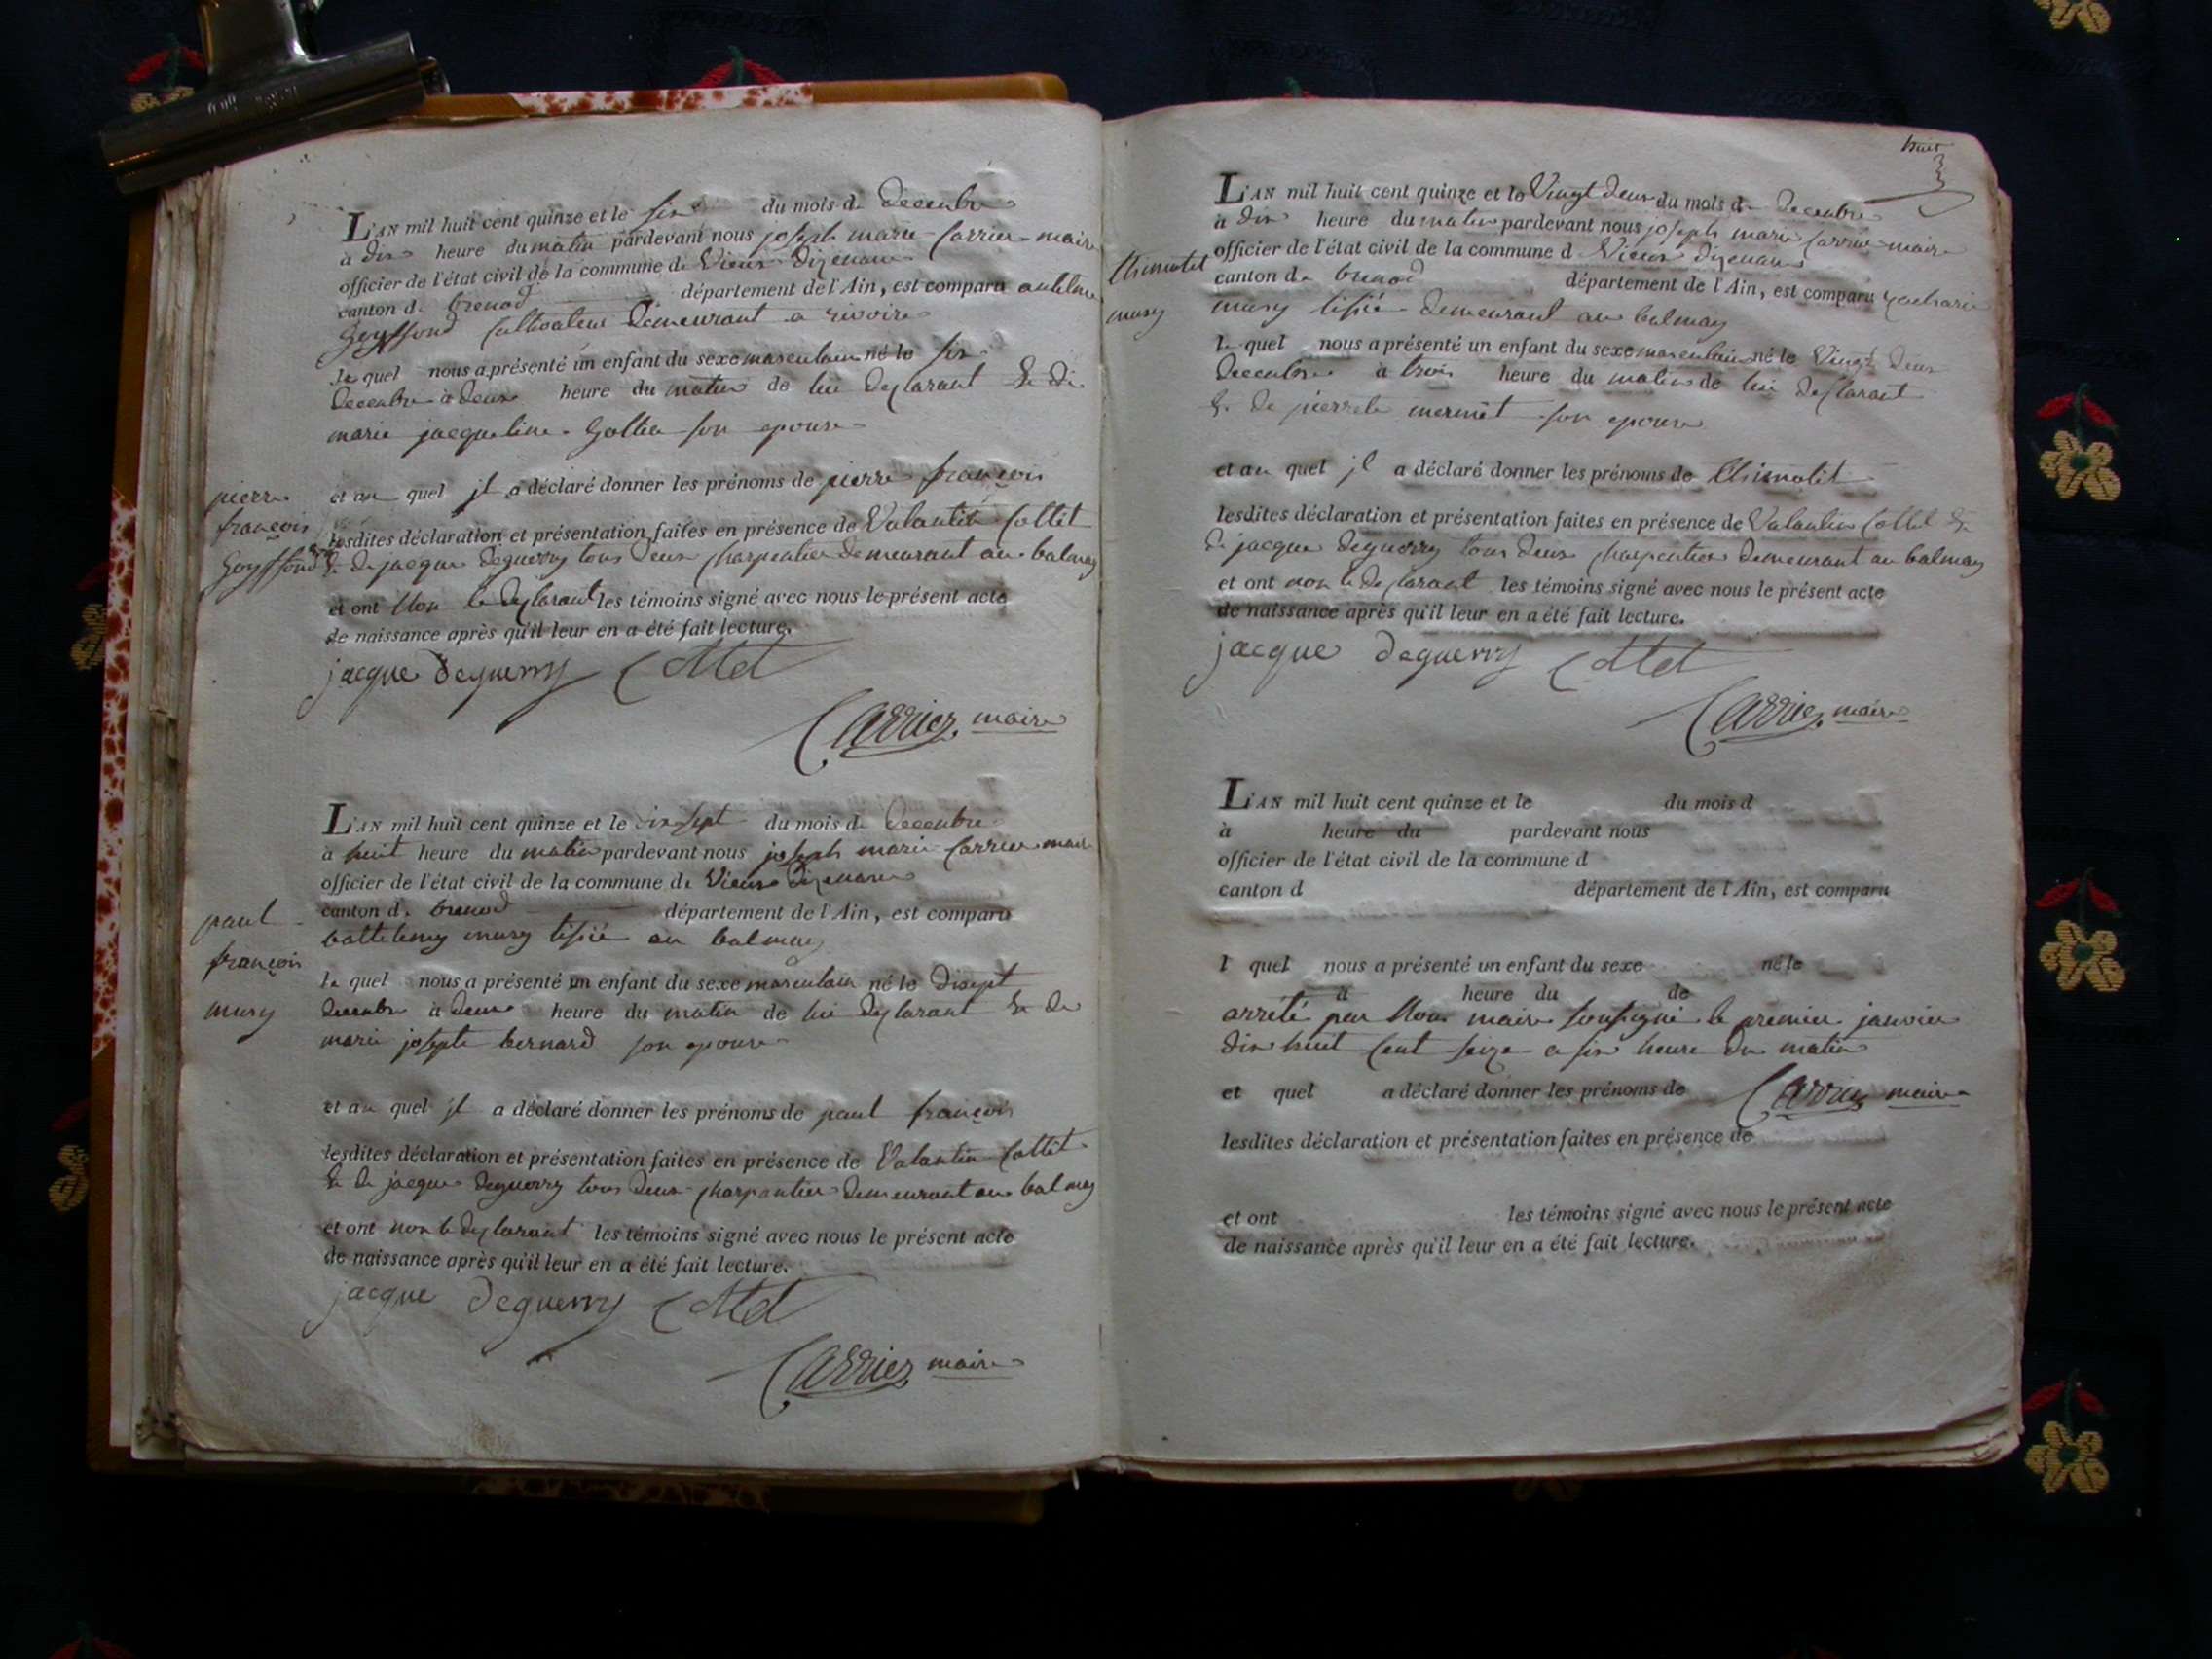 L'AN mil huit cent quinze et le six du mois de decembre
à dix heure du matin pardevant nous joseph marie Carrier maire
officier de l'état civil de la commune de Vieux dizenave
canton de brenod département de l'Ain, est comparu antelme
Goyffond Cultivateur Demeurant a rivoire
le quel nous a présenté un enfant du sexe masculain né le six
Decembre à deux heure du matin de lui declarant & de
marie jacqueline son epouse
pierre
françois
Goyffond
et au quel jl a déclaré donner les prénoms de pierre françois
lesdites déclaration et présentation faites en présence de Valantin Collet
& de jacque deguerry tous deux charpentier demeurant au balmay
et ont Non le declarant les témoins signé avec nous le présent acte
de naissance après qu'il leur en a été fait lecture.
jacque deguerry Collet
Carrier, maire
L'AN mil huit cent quinze et le dix sept du mois de decembre
à huit heure du matin pardevant nous joseph marie Carrier maire
officier de l'état civil de la commune de Vieux dizenave
canton de brenod département de l'Ain, est comparu
battelemy musy tisié au balmay
paul
françois
musy
le quel nous a présenté un enfant du sexe masculain né le disept
decembre à deux heure du matin de lui declarant & de
marie josephte bernard son epouse
et au quel jl a déclaré donner les prénoms de paul françois
lesdites déclaration et présentation faites en présence de Valantin Collet
& de jacque deguerry tous deux charpantier demeurant au balmay
et ont non le declarant les témoins signé avec nous le présent acte
de naissance après qu'il leur en a été fait lecture.
jacque deguerry Collet
Carrier maire
huit
L'AN mil huit cent quinze et le Vingt deux du mois de decembre
à dix heure du matin pardevant nous joseph marie Carrier maire
officier de l'état civil de la commune d Vieux dizenave
canton de brenod département de l'Ain, est comparu zacharie
musy tisié demeurant au balmay
musy
le quel nous a présenté un enfant du sexe masculain né le Vingt deux
Decembre à trois heure du matin de lui declarant
& de pierrete mermet son epouse
et au quel jl a déclaré donner les prénoms de
lesdites déclaration et présentation faites en présence de Valantin Collet &
de jacque deguerry tous deux charpentier demeurant au balmay
et ont non le declarant les témoins signé avec nous le présent acte
de naissance après qu'il leur en a été fait lecture.
jacque deguerry Collet
Carrier, maire
L'AN mil huit cent quinze et le du mois d
à heure du pardevant nous
officier de l'état civil de la commune d
canton d département de l'Ain, est comparu
l quel nous a présenté un enfant du sexe né le
à heure du de
arrêté par Nous maire soussigné le premier janvier
dix huit cent seize a six heure du matin
et quel a déclaré donner les prénoms de Carrier maire
lesdites déclaration et présentation faites en présence de
et ont les témoins signé avec nous le présent acte
de naissance après qu'il leur en a été fait lecture.